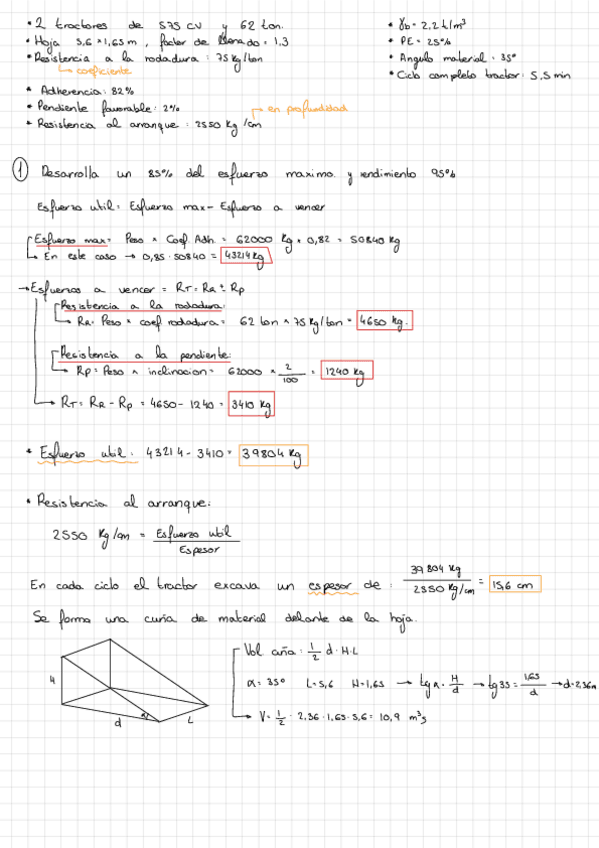 • 2 tractores de 575 CV y 62 ton.
• Hoja 5,6 * 1,65 m, factor de llenado = 1,3
• Resistencia a la rodadura : 75 kg/ton
↳ coeficiente
• Adherencia: 82%
• Pendiente favorable: 2%
→ en profundidad
• Resistencia al arranque : 2550 kg/cm
• γb = 2,2 t/m³
• PE = 25%
• Angulo material : 35°
• Ciclo completo tractor: 5,5 min
① Desarrolla un 85% del esfuerzo maximo y rendimiento 95%
Esfuerzo util = Esfuerzo max - Esfuerzo a vencer
Esfuerzo max = Peso * Coef. Adh = 62000 kg * 0,82 = 50840 kg
↳ En este caso → 0,85 · 50840 = 43214 kg
→ Esfuerzos a vencer = RT = RR ± Rp
Resistencia a la rodadura:
↳ RR = Peso * coef rodadura = 62 ton * 75 kg/ton = 4650 kg.
Resistencia a la pendiente:
↳ Rp = Peso * inclinacion = 62000 * 2/100 = 1240 kg
↳ RT = RR - Rp = 4650 - 1240 = 3410 kg
* Esfuerzo util : 43214 - 3410 = 39804 kg
• Resistencia al arranque:
2550 kg/cm = Esfuerzo util / Espesor
En cada ciclo el tractor excava un espesor de : 39804 kg / 2550 kg/cm = 15,6 cm
Se forma una cuña de material delante de la hoja.
H
d
α
L
Vol cuña : 1/2 d · H · L
α = 35° L = 5,6 H = 1,65 → tg α = H/d → tg 35 = 1,65/d → d = 2,36m
↳ V = 1/2 · 2,36 · 1,65 · 5,6 = 10,9 m³s